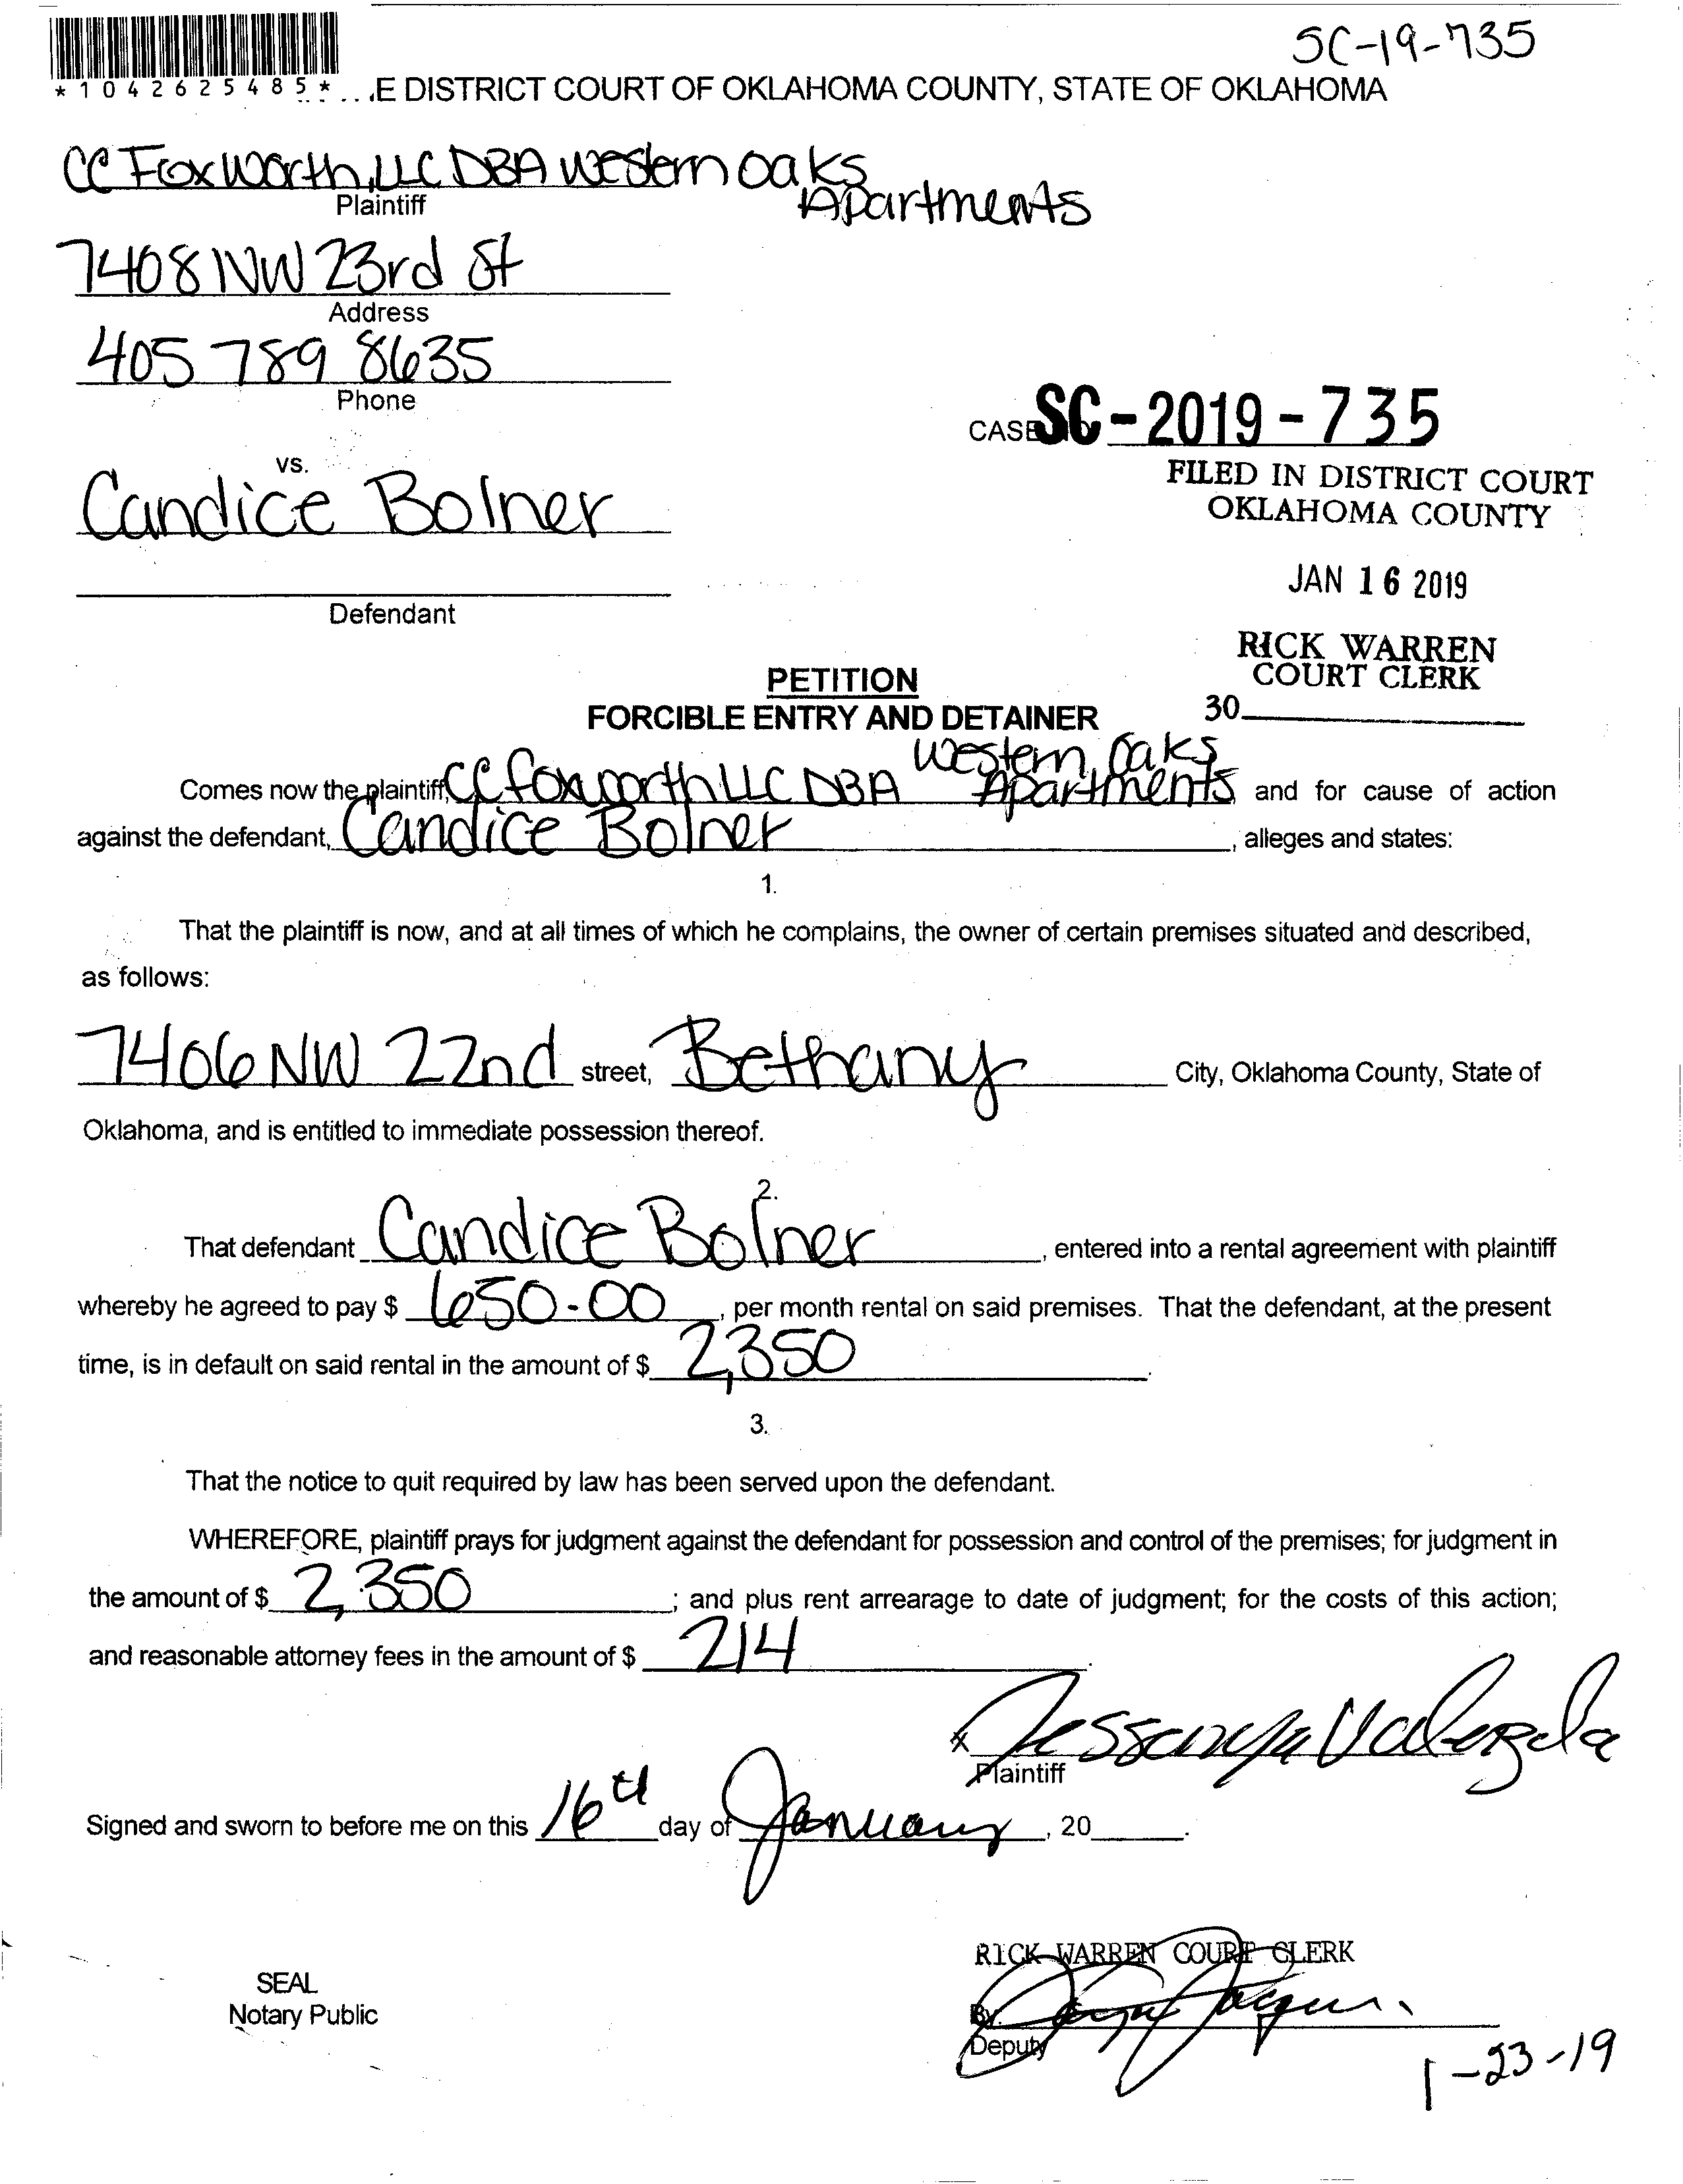 SC-19-735
*1042625485* E DISTRICT COURT OF OKLAHOMA COUNTY, STATE OF OKLAHOMA
CC Foxworth, LLC DBA Western Oaks
Apartments
Plaintiff
7408 NW 23rd St
Address
405 789 8635
Phone
CASE SC-2019-735
vs.
FILED IN DISTRICT COURT
OKLAHOMA COUNTY
Candice Bolner
JAN 16 2019
Defendant
RICK WARREN
COURT CLERK
PETITION
FORCIBLE ENTRY AND DETAINER
30
Comes now the plaintiff, CC foxworth LLC DBA Western Oaks Apartments and for cause of action
against the defendant, Candice Bolner, alleges and states:
1.
That the plaintiff is now, and at all times of which he complains, the owner of certain premises situated and described,
as follows:
7406 NW 22nd street, Bethany City, Oklahoma County, State of
Oklahoma, and is entitled to immediate possession thereof.
2.
That defendant Candice Bolner, entered into a rental agreement with plaintiff
whereby he agreed to pay $ 650.00, per month rental on said premises. That the defendant, at the present
time, is in default on said rental in the amount of $ 2,350.
3.
That the notice to quit required by law has been served upon the defendant.
WHEREFORE, plaintiff prays for judgment against the defendant for possession and control of the premises; for judgment in
the amount of $ 2,350; and plus rent arrearage to date of judgment; for the costs of this action;
and reasonable attorney fees in the amount of $ 214.
x
Plaintiff
Signed and sworn to before me on this 16th day of January, 20 .
RICK WARREN COURT CLERK
SEAL
Notary Public
By.
Deputy
1-23-19